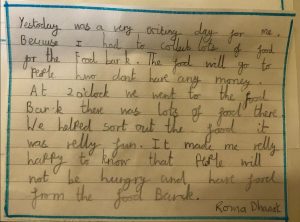 Yestoday was a very exiting day for me.
Because I had to collect lots of food
for the Food bank. The food will go to
People who dont have any money.
At 2 o'clock we went to the food
Bank there was lots of food there.
We helped sort out the food it
was relly fun. It made me relly
happy to know that People will
not be hungry and have food
from the food Bank.
Roma